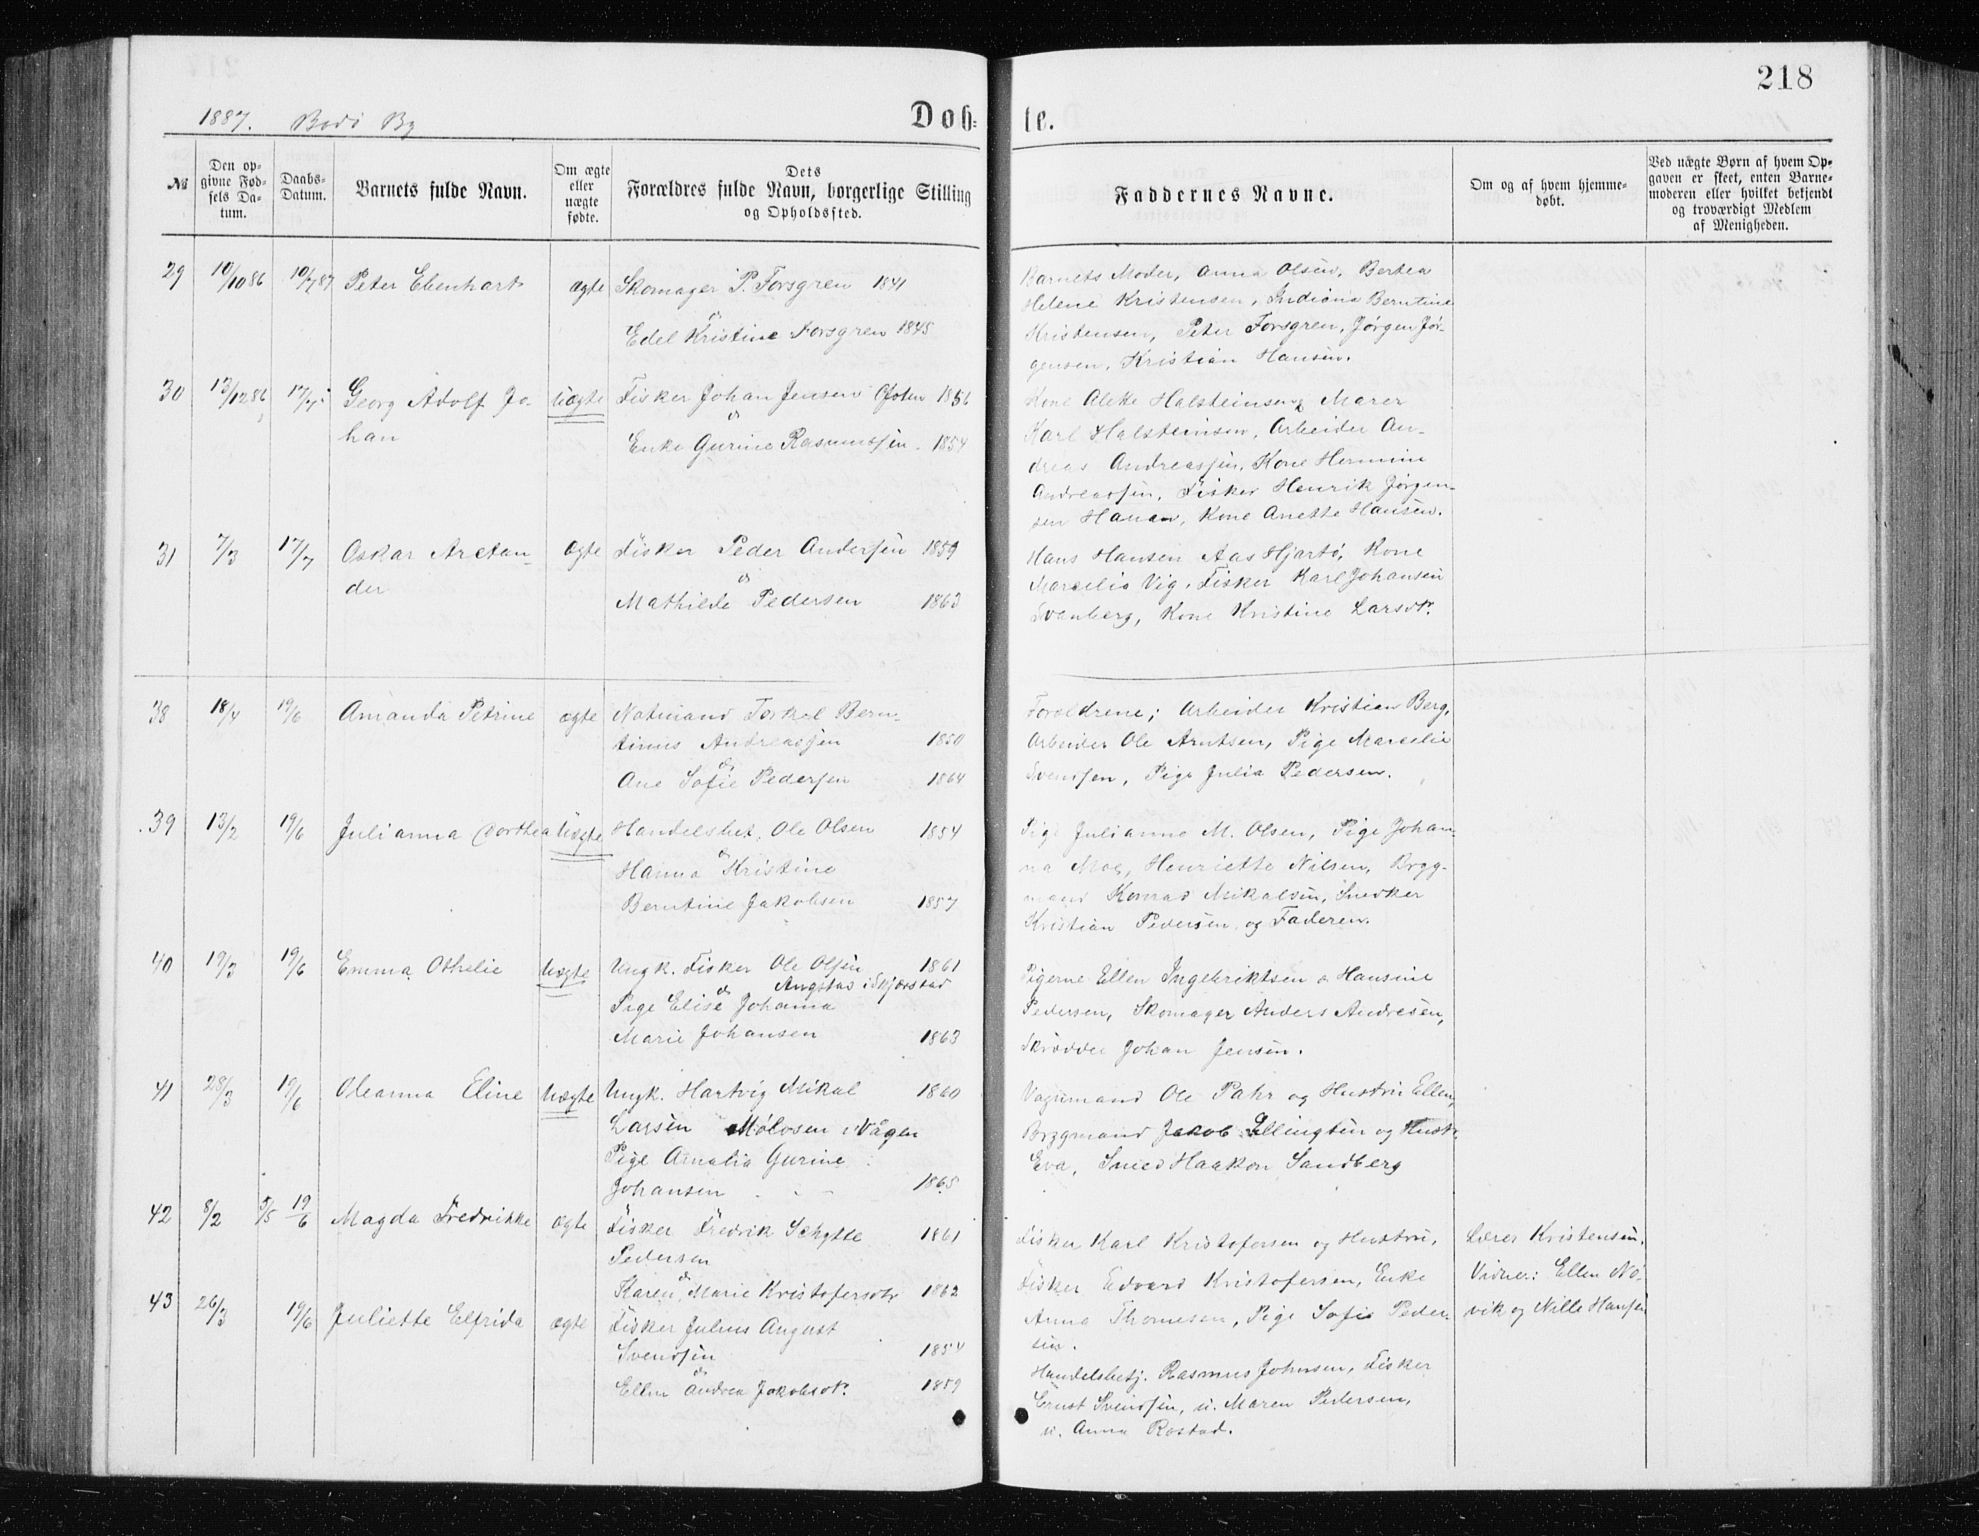 218
1887. Bodö By
Døb- te.
№
Den op-
givne Fød-
sels Da-
tum.
Daabs-
Datum.
Barnets fulde Navn.
Om ægte
eller
uægte
fødte.
Dets
Forældres fulde Navn, borgerlige Stilling
og Opholdssted.
Faddernes Navne.
Om og af hvem hjemme-
døbt.
Ved uægte Børn af hvem Op-
gaven er skeet, enten Barne-
moderen eller hvilket bekjendt
og troværdigt Medlem
af Menigheden.
29 10/10 86 10/7 87 Peter Ebenhart ægte Skomager P. Forsgren 1841
&
Edel Kristine Forsgren 1845
Barnets Moder, Anna Olsen, Bertea
Helene Kristensen, Indiana Berntine
Kristensen, Peter Forsgren, Jørgen Jør-
gensen, Kristian Hansen.
30 13/12 86 17/7 Georg Adolf Jo-
han
Uægte Fisker Johan Jensen Ofoten 1856
&
Enke Gurine Rasmussen. 1854
Kone Aleke Halsteinsen, Marer
Karl Halsteinsen, Arbeider An-
dreas Andreassen, Kone Hermine
Andreassen, Fisker Henrik Jørgen-
sen Hanan, Kone Anette Hansen.
31 7/3 17/7 Oskar Aretan-
der
Ægte Fisker Peder Andersen 1859
&
Mathilde Pedersen 1863
Hans Hansen Aas Hjartö, Kone
Marselia Vig, Fisker Karl Johansen
Svanberg, Kone Kristine Larsdt.
38 18/4 19/6 Amanda Petrine ægte Notmand Torkel Bern-
tinus Andreassen 1850
&
Ane Sofie Pedersen 1864
Forældrene; Arbeider Kristian Berg,
Arbeider Ole Arntsen, Pige Marselie
Svensen, Pige Julia Pedersen.
39 13/2 19/6 Julianna Dorthea Uægte Handelsbet. Ole Olsen 1854
&
Hanna Kristine
Berntine Jakobsen 1857
Pige Julianna M. Olsen, Pige Johan-
na Moe, Henriette Nilsen, Brygg-
mand Konrad Mikalsen, Snedker
Kristian Pedersen og Faderen.
40 19/3 19/6 Emma Othelie Uægte Ungk. Fisker Ole Olsen 1861
Angstad i Skjærstad
&
Pige Elise Johanna
Marie Johansen 1863
Pigerne Ellen Ingebriktsen & Hansine
Pedersen, Skomager Anders Andresen,
Skrædder Johan Jensen.
41 28/3 19/6 Oleanna Eline Uægte Ungk. Hartvig Mikal 1860
Larsen Mölosen i Vågen
Pige Amalia Gurine
Johansen 1865
Vognmand Ole Pahr og Hustru Ellen,
Bryggmand Jakob Ellingsen og Hustr.
Eva, Smed Haakon Sandberg
42 8/2 5/5 19/6 Magda Fredrikke ægte Fisker Fredrik Schytte 1861
Pedersen
&
Karen Marie Kristofersdtr 1862
Fisker Karl Kristofersen og Hustru,
Fisker Edvard Kristofersen, Enke
Anna Thomesen, Pige Sofie Peder-
sen.
Lærer Kristensen.
Vidner: Ellen Nö-
vik og Nille Hansen
43 26/3 19/6 Juliette Elfrida ægte Fisker Julius August
Svensen 1854
&
Ellen Andrea Jakobsdt. 1859
Handelsbetj. Rasmus Johnsen, Fisker
Ernst Svensen, u. Maren Pedersen,
u. Anna Rostad.